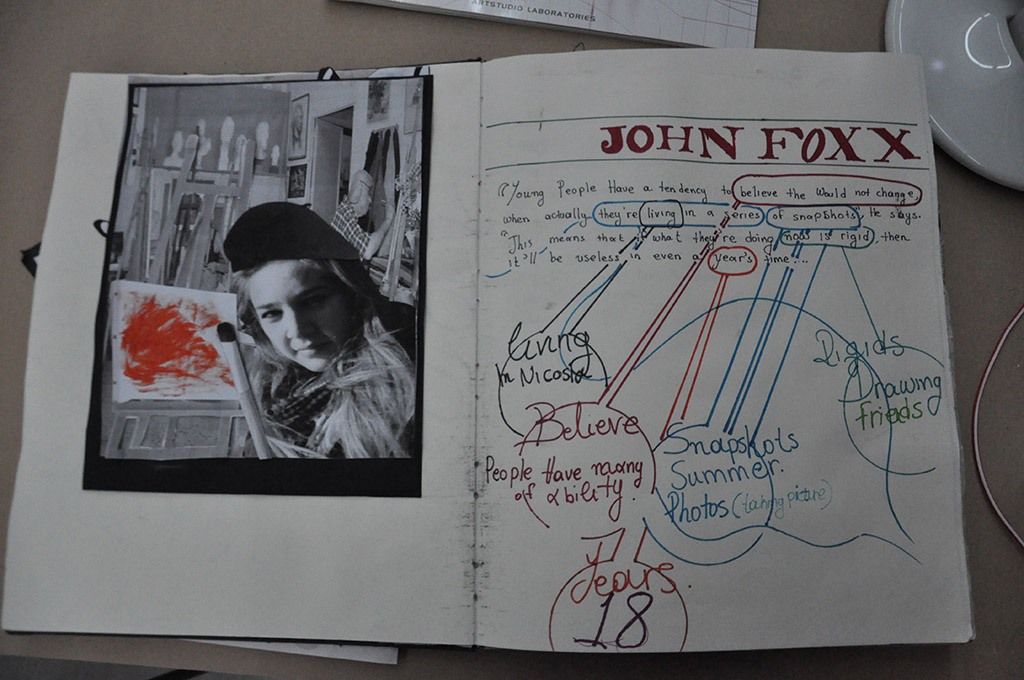 ARTSTUDIO LABORATORIES
JOHN FOXX
"Young People Have a tendency to believe the Would not change,
when actually they're living in a series of snapshots", He says.
"This means that if what they're doing now is rigid, then
it'll be useless in even a year's time....
living
in Nicosia
Rigids
Drawing
friends
Believe
People Have many
of ability.
Snapshots
Summer.
Photos (taking picture)
Years.
18